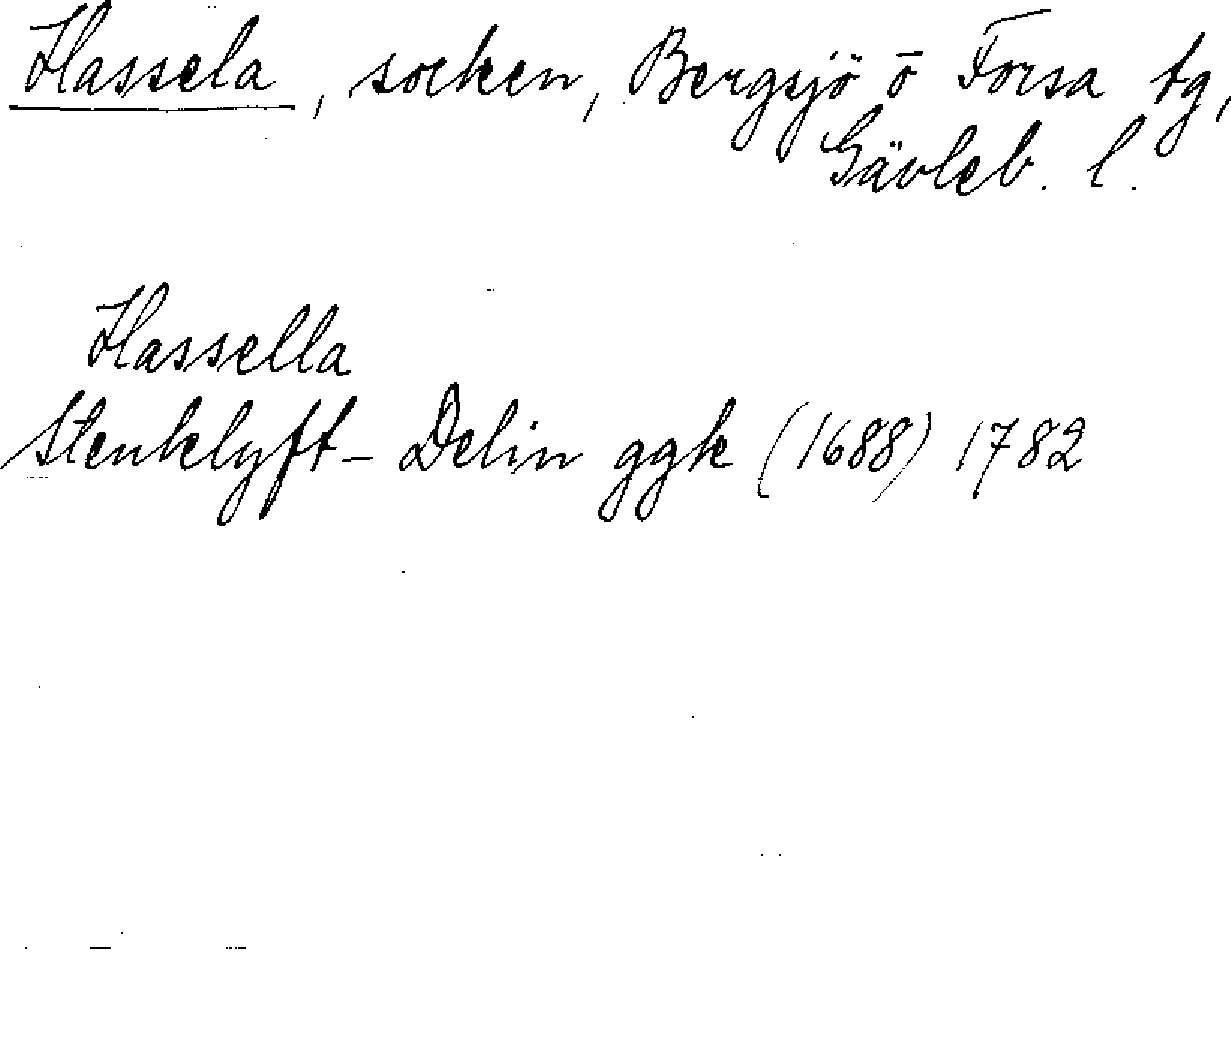 Hassela, socken, Bergsjö o Forsa tg,
Gävleb. l.
Hassella
Stenklyft - Delin ggk (1688) 1782